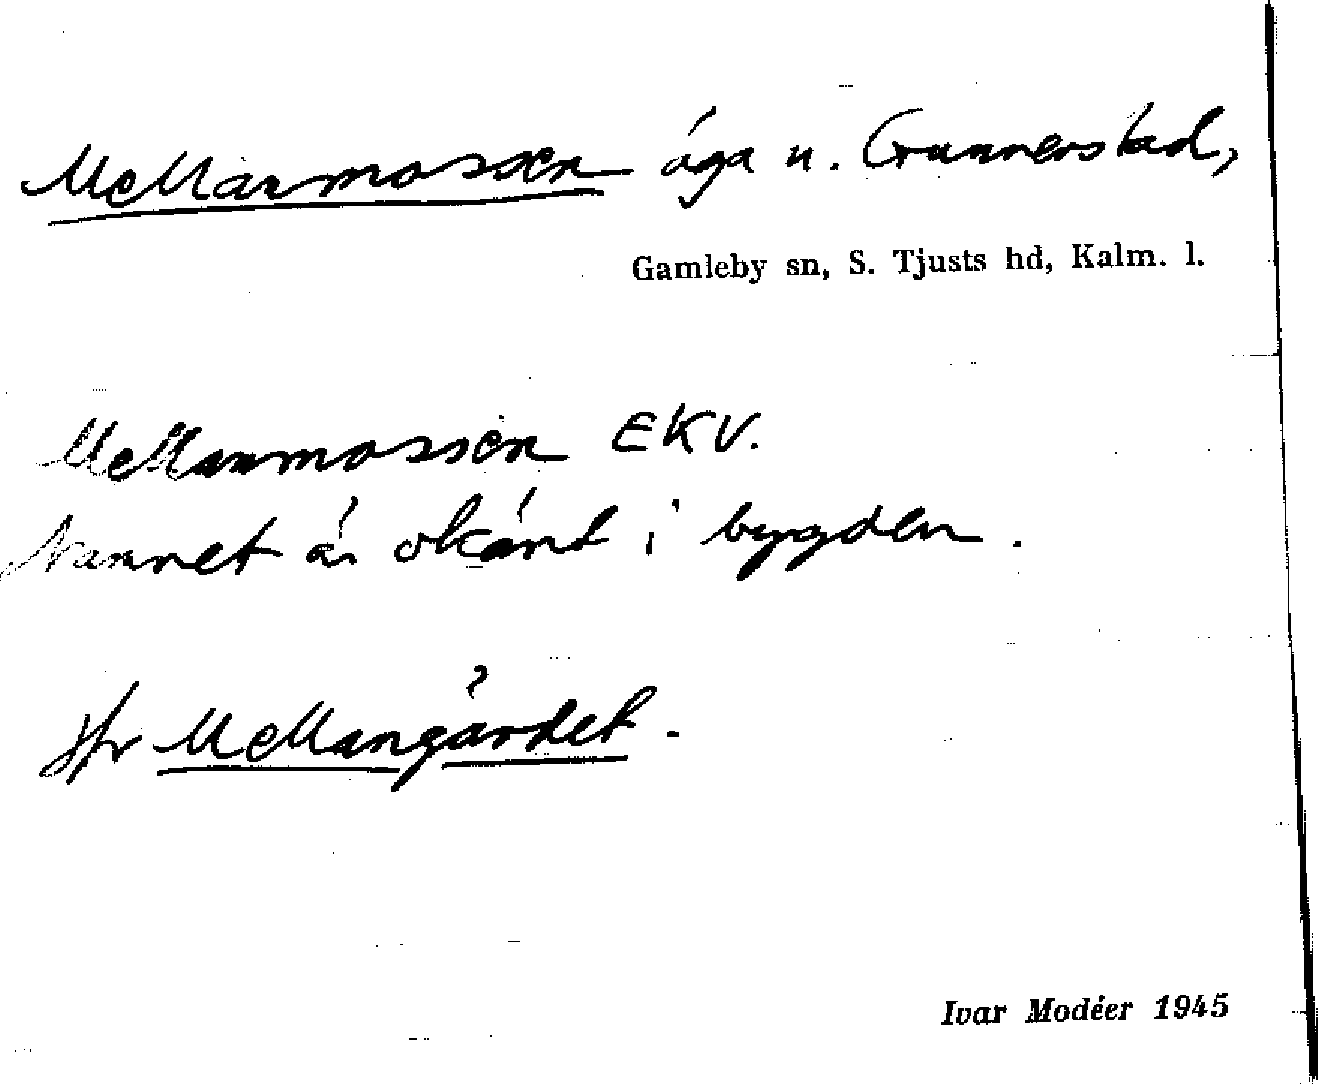 Mellanmossen äga u. Gunnerstad,
Gamleby sn, S. Tjusts hd, Kalm. l.
Mellanmossen EKV.
Namnet är okänt i bygden.
Jfr Mellangärdet.
Ivar Modéer 1945